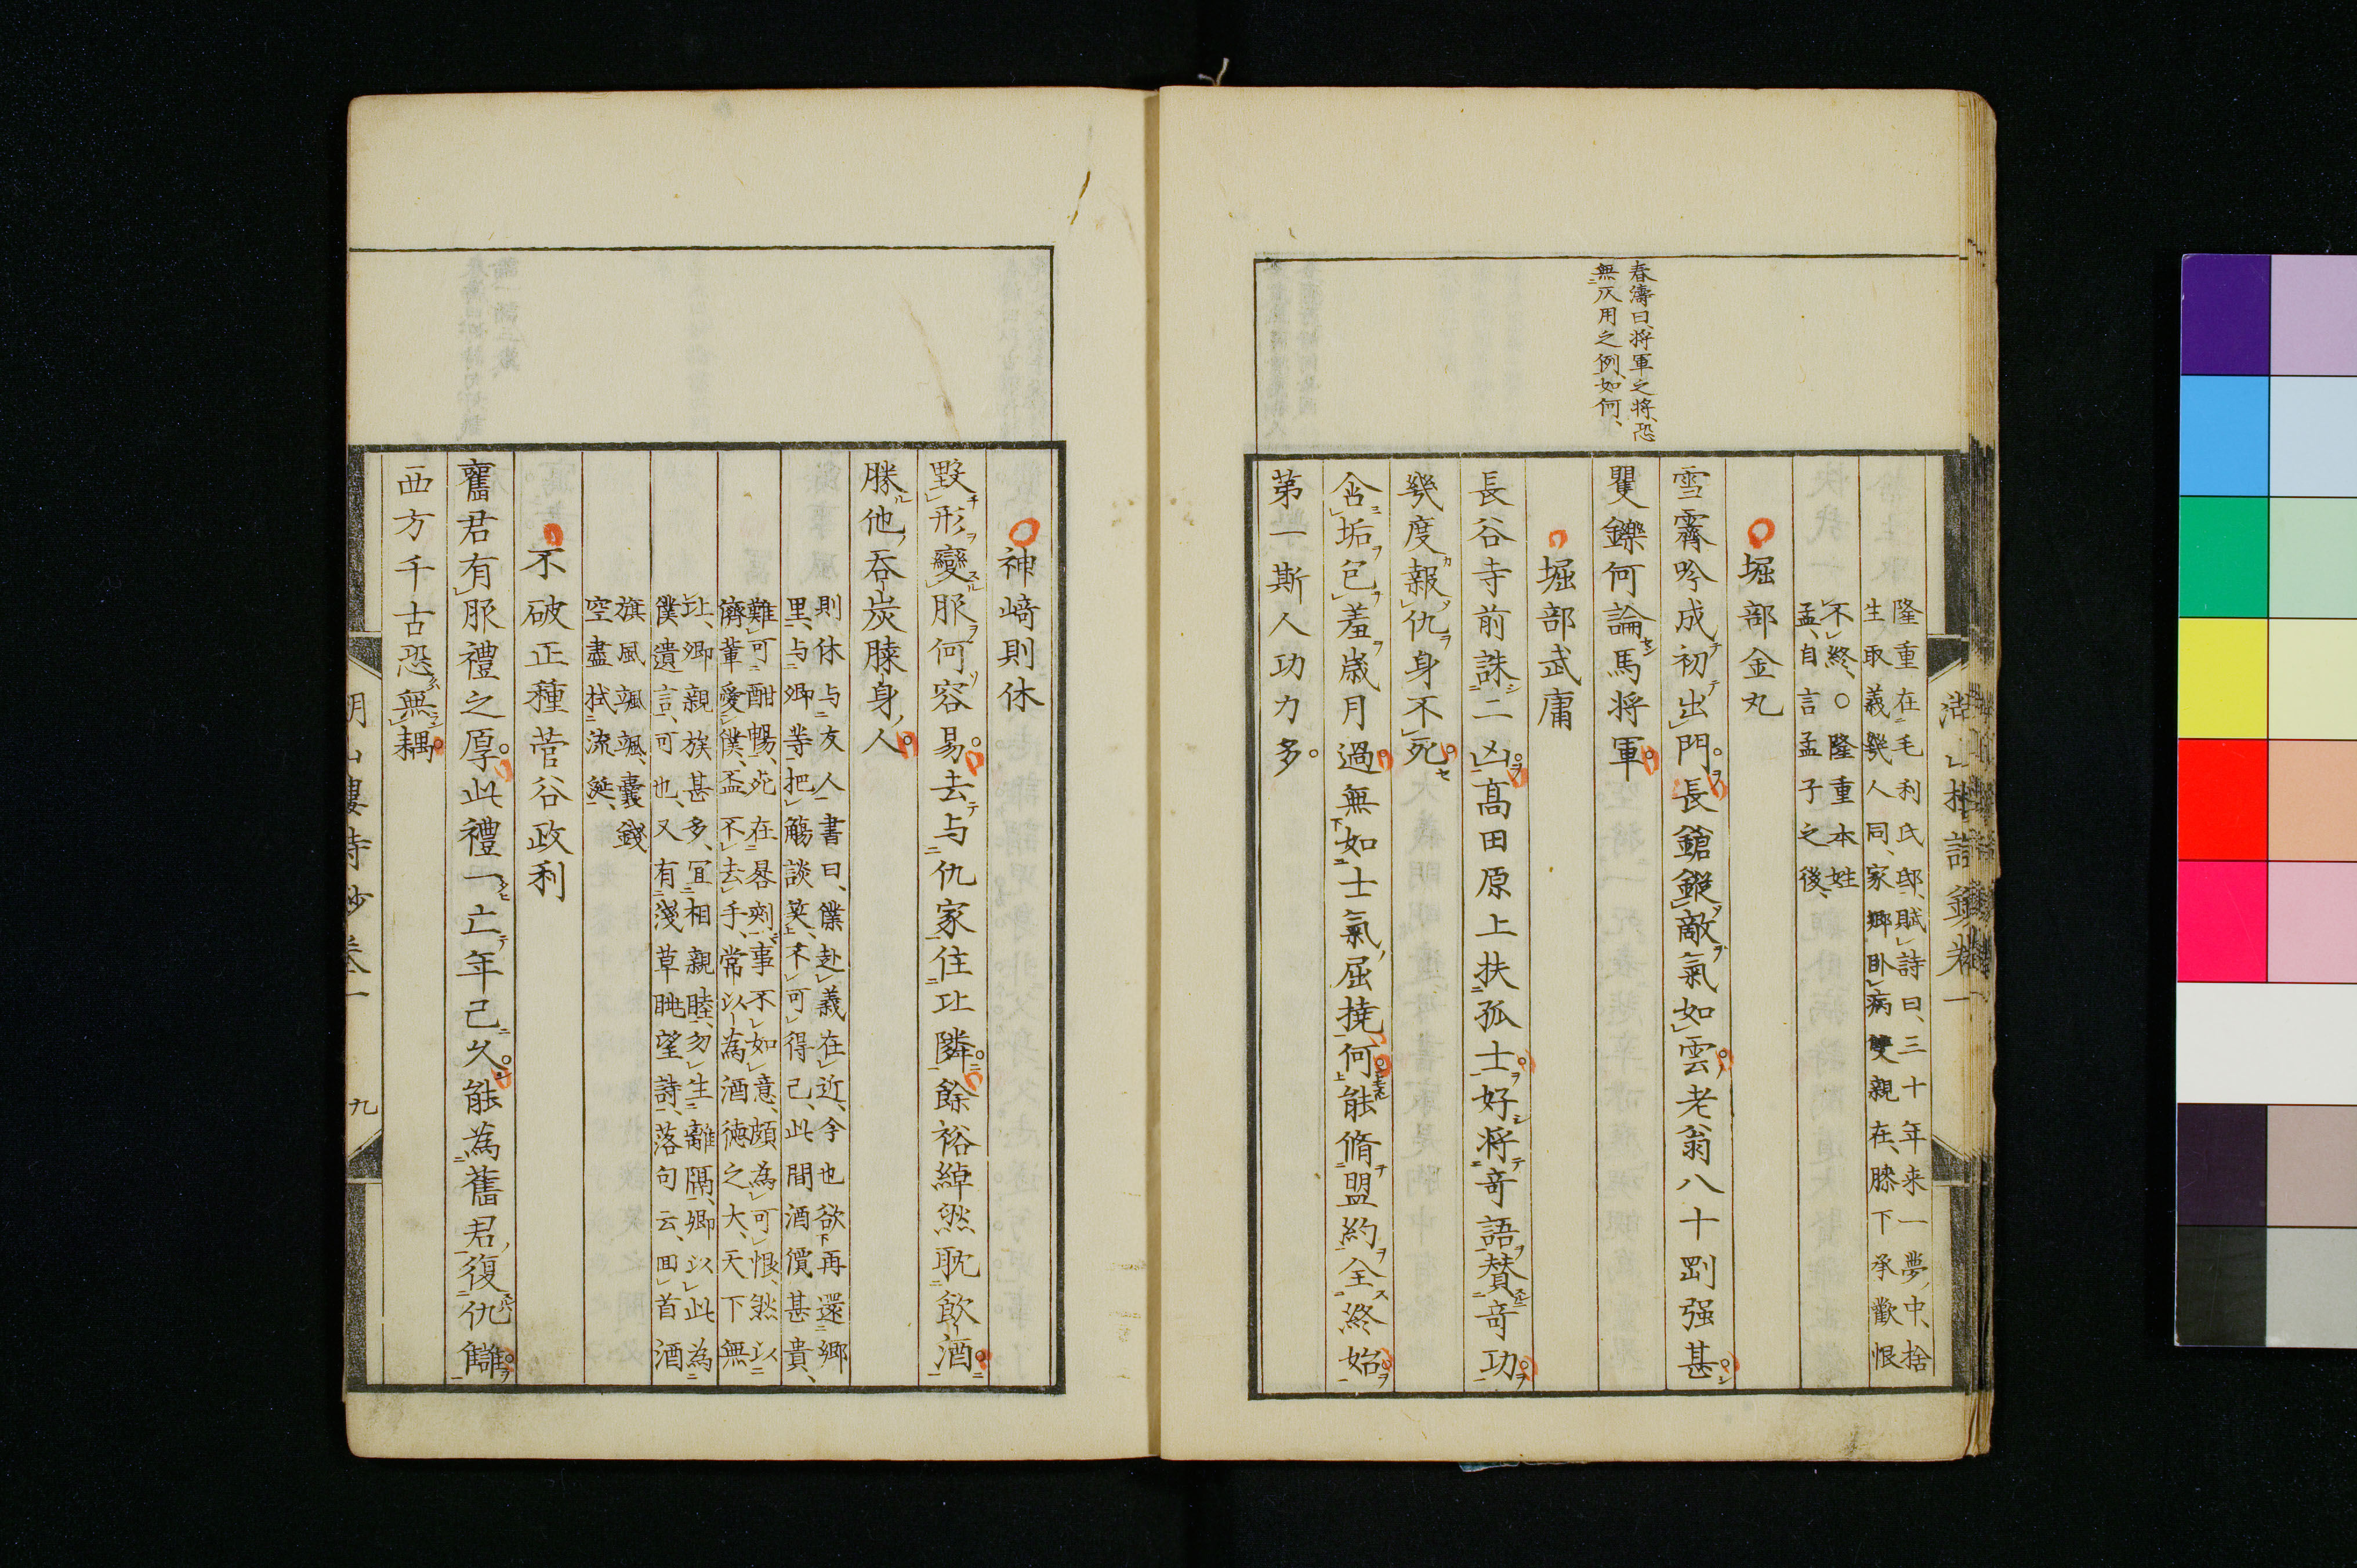 春濤曰、将軍之将、恐
無仄用之例、如何、
隆重在毛利氏邸、賦詩曰、三十年来一夢中、捨
生取義幾人同、家郷卧病雙親在、膝下承歡恨
不終、○隆重本姓
孟、自言孟子之後、
堀部金丸
雪霽吟成初出門。長鎗鏦敵氣如雲。老翁八十剛强甚。
矍鑠何論馬将軍。
堀部武庸
長谷寺前誅二凶。髙田原上扶孤士。好将奇語賛奇功。
幾度報仇身不死。
含垢包羞歳月過。無如士氣屈撓何。能脩盟約全終始。
第一斯人功力多。
神﨑則休
毀形變服何容易。去与仇家住比隣。餘裕綽然耽飲酒。
勝他吞炭膝身人。
則休与友人書曰、僕赴義在近、今也欲再還郷
里、与卿等把觴談笑、不可得已、此間酒價甚貴、
難可酣暢、死在晷刻、事不如意、頗為可恨、然以
儕軰愛僕、盃不去手、常以為酒徳之大、天下無
比、卿親族甚多、宜相親睦、勿生離隔、卿以此為
僕遺言、可也、又有淺草眺望詩、落句云、回首酒
旗風颯颯、囊錢
空盡拭流涎、
不破正種菅谷政利
舊君有服禮之厚。此禮一亡年已久。能為舊君復仇讎。
西方千古恐無耦。
樓詩鈔卷一
九